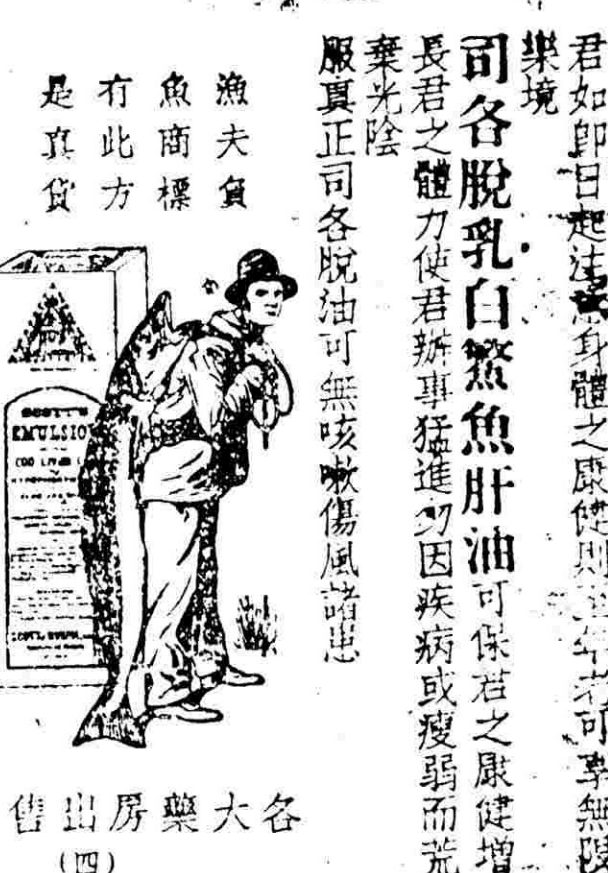 君如即日起注意身體之康健則至年老可享無限
樂境
司各脫乳白鰵魚肝油可保君之康健增
長君之體力使君辦事猛進勿因疾病或瘦弱而荒
棄光陰
服眞正司各脫油可無咳嗽傷風諸患
漁夫負
魚商標
有此方
是眞貨
SCOTT'S
EMULSION
COD LIVER
各大藥房出售
(四)